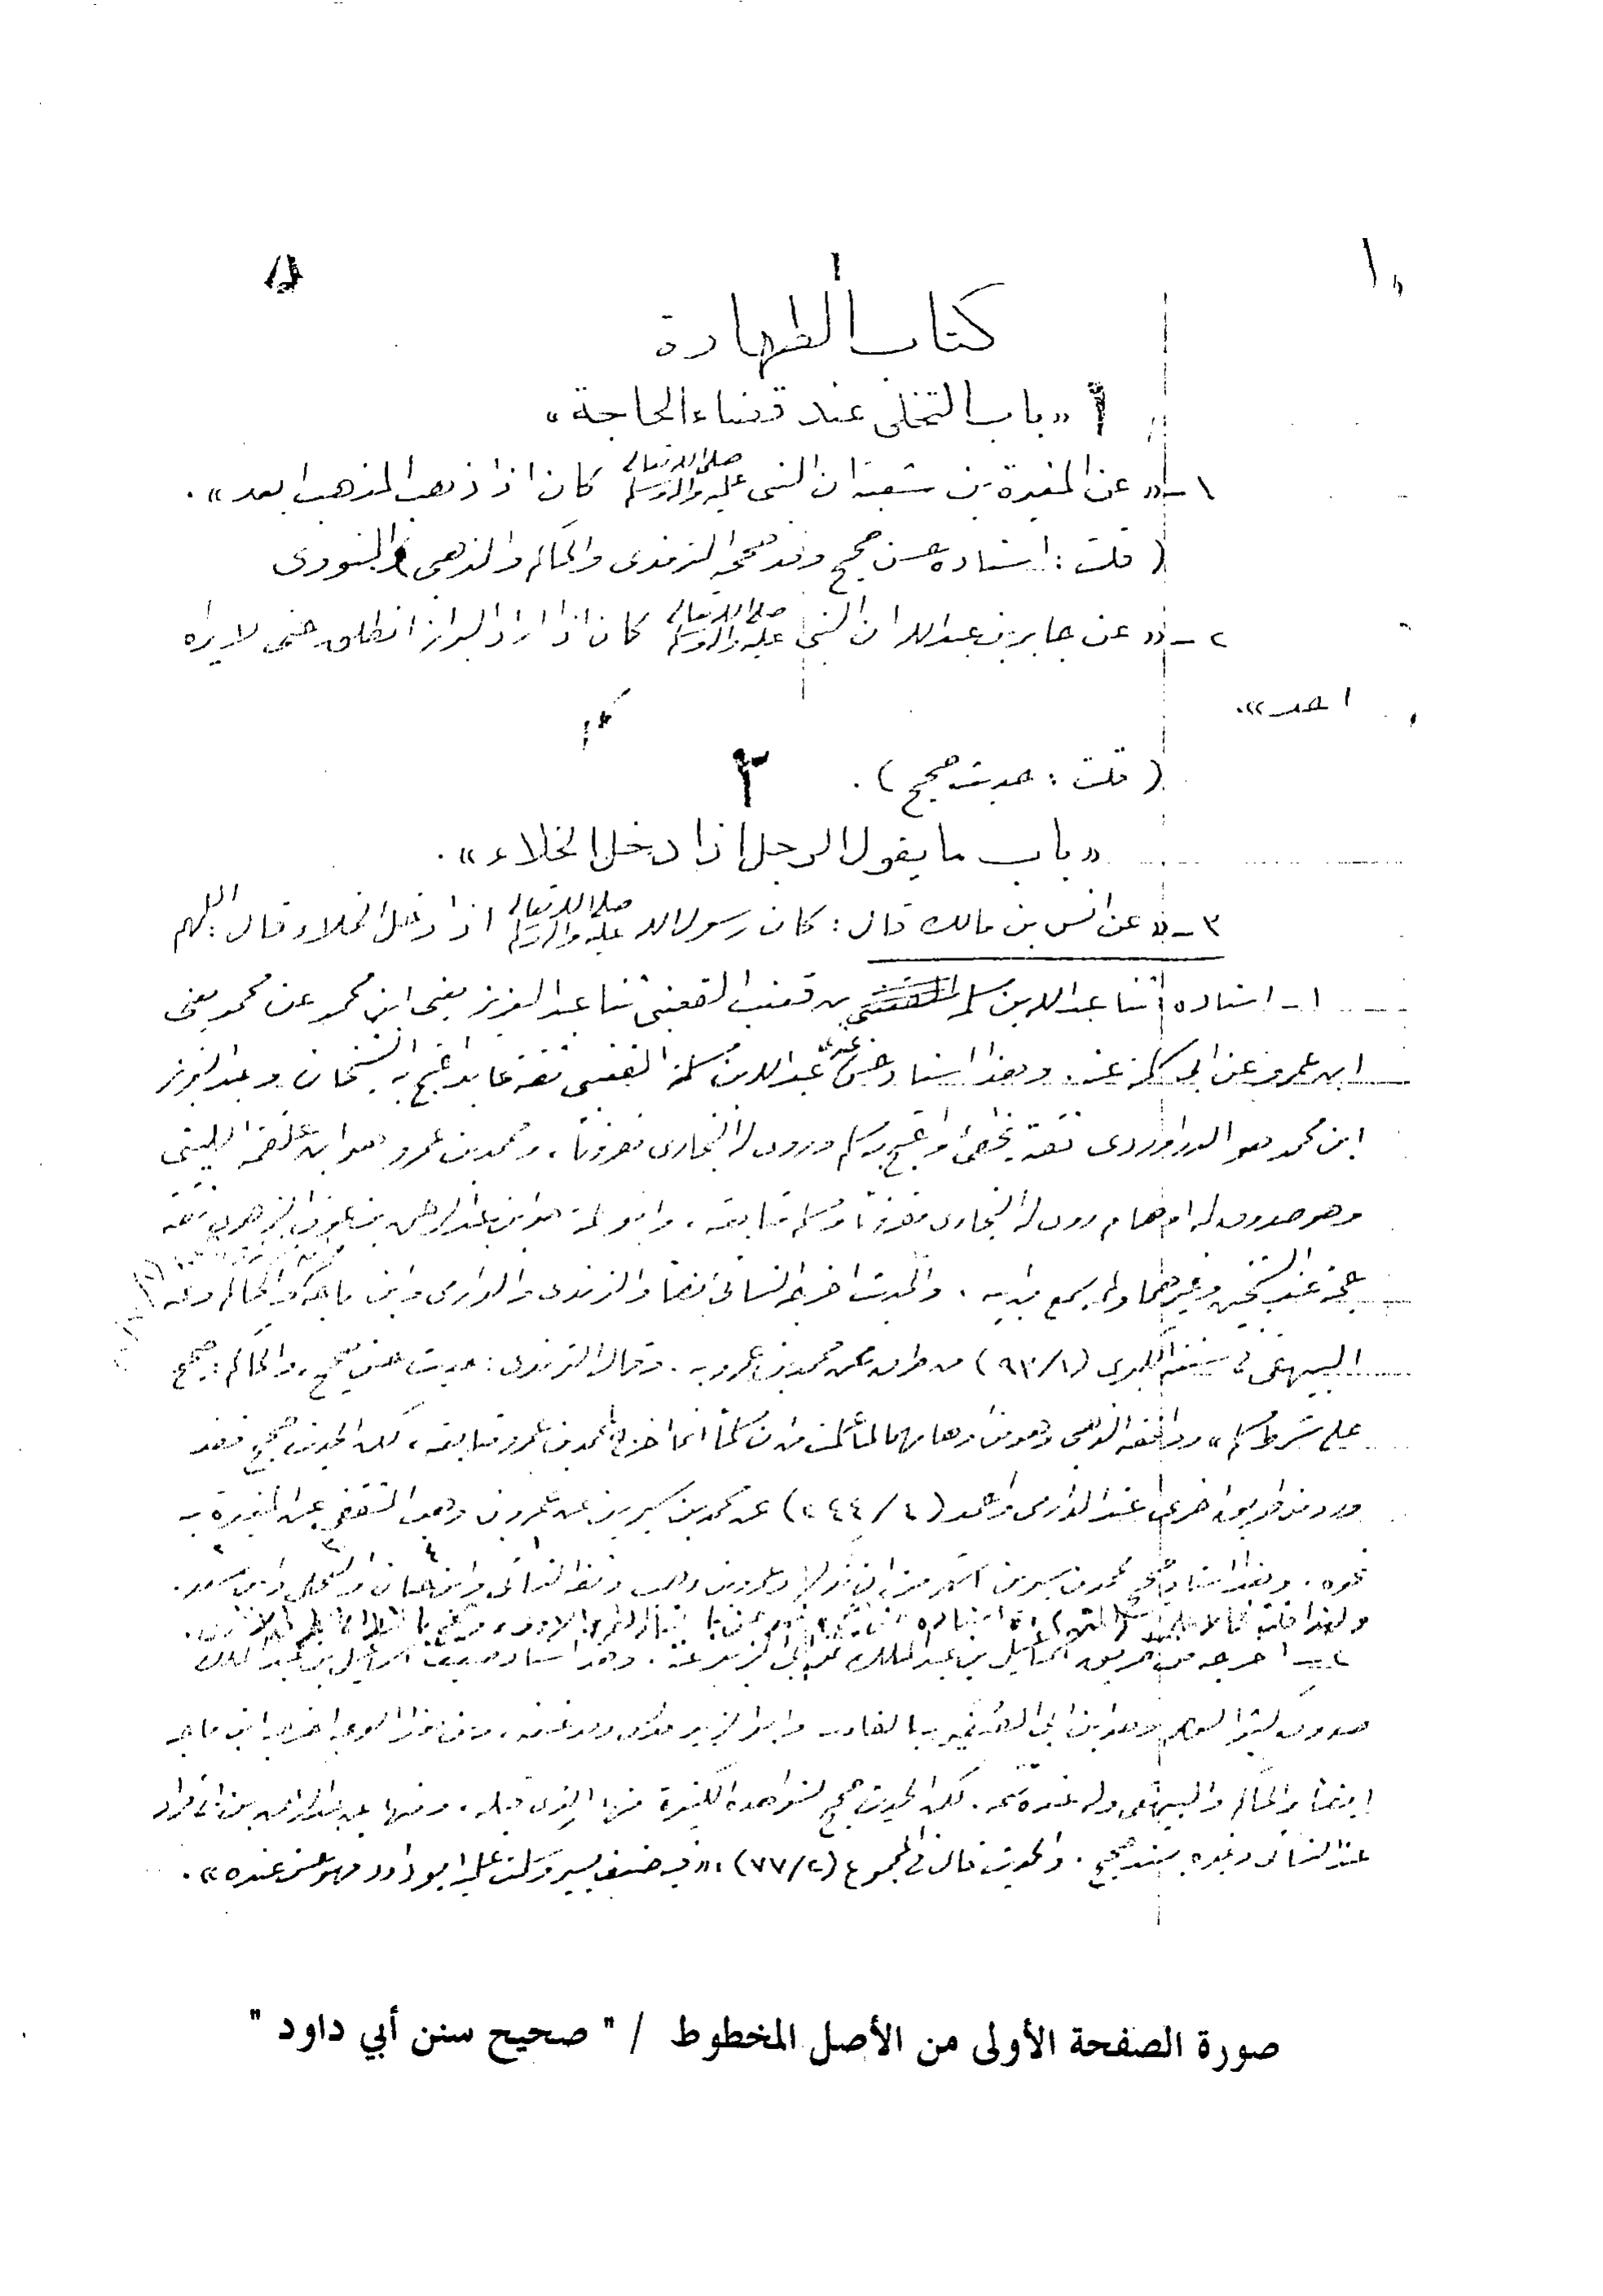 ١
كتاب الطهارة
١ «باب التخلي عند قضاء الحاجة»
١ـ «عن المغيرة بن شعبة ان النبي صلى الله تعالى عليه وآله وسلم كان اذا ذهب المذهب ابعد».
(قلت: اسناده حسن صحيح وقد صححه الترمذي والحاكم والذهبي والنووي
٢ـ «عن جابر بن عبد الله ان النبي صلى الله تعالى عليه وآله وسلم كان اذا اراد البراز انطلق حتى لا يراه
احد».
(قلت: حديث صحيح).
٢
«باب ما يقول الرجل اذا دخل الخلاء».
٣ـ «عن انس بن مالك قال: كان رسول الله صلى الله تعالى عليه وآله وسلم اذا دخل الخلاء قال: اللهم
١ـ اسناده: ثنا عبد الله بن مسلمة بن قعنب القعنبي ثنا عبد العزيز يعني ابن محمد عن محمد يعني
ابن عمرو عن ابي سلمة عنه. وهذا اسناد حسن عبد الله بن مسلمة القعنبي ثقة عابد احتج به الشيخان وعبد العزيز
ابن محمد هو الدراوردي ثقة يخطئ واحتج به مسلم وروى له البخاري مقرونا، ومحمد بن عمرو هو ابن علقمة الليثي
وهو صدوق له اوهام روى له البخاري مقرونا ومسلم متابعة، وابو سلمة هو ابن عبد الرحمن بن عوف الزهري ثقة
حجة عند الشيخين وغيرهما ولم يسمع من ابيه. والحديث اخرجه النسائي ايضا والترمذي والدارمي وابن ماجه والحاكم وعنه
البيهقي في سننه الكبرى (٩٣/١) من طرق عن محمد بن عمرو به. وقال الترمذي: حديث حسن صحيح، والحاكم: صحيح
على شرط مسلم» ووافقه الذهبي وهو من اوهامهما لما علمت من ان مسلما انما اخرج لمحمد بن عمرو متابعة، لكن الحديث صحيح فقد
ورد من طريق اخرى عند الدارمي واحمد (٢٤٤/٤) عن محمد بن سيرين عن عمرو بن وهب الثقفي عن المغيرة به
نحوه. وهذا اسناد صحيح محمد بن سيرين اشهر من ان يذكر وعمرو بن وهب وثقه النسائي وابن حبان والعجلي وابن سعد.
٢ـ اخرجه من طريق اسماعيل بن عبد الملك عن ابي الزبير عنه. وهذا اسناد ضعيف اسماعيل بن عبد الملك
صدوق كثير الوهم وهو ابن ابي الصفير بالفاء وابو الزبير مدلس وقد عنعنه، ومن هذا الوجه اخرجه ابن ماجه
ايضا والحاكم والبيهقي وله عنده تتمة. لكن الحديث صحيح لشواهده الكثيرة منها الذي قبله. ومنها عن عبد الرحمن بن ابي قراد
عند النسائي وغيره بسند صحيح. والحديث قال في المجموع (٧٧/٢): «فيه ضعف يسير وسكت عليه ابو داود فهو حسن عنده».
صورة الصفحة الأولى من الأصل المخطوط / " صحيح سنن أبي داود "